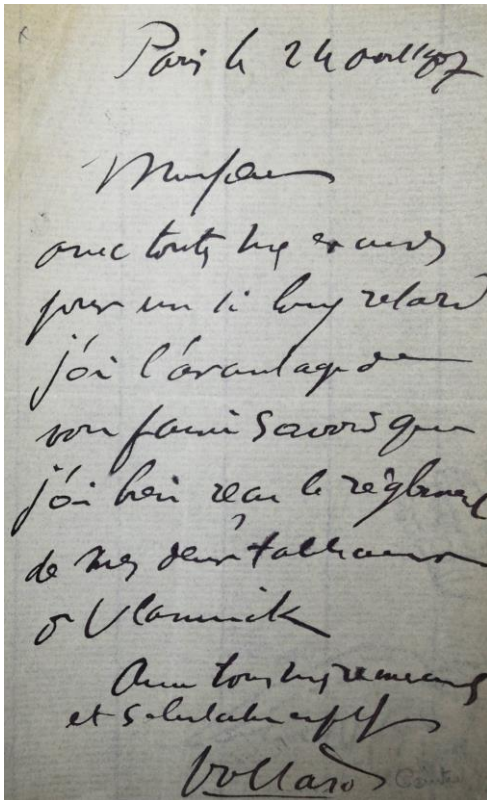 Paris le 24 avril 1907
Monsieur
avec toutes mes excuses
pour un si long retard
j'ai l'avantage de
vous faire savoir que
j'ai bien reçu le règlement
de mes deux tableaux
de Vlaminck
Avec tous mes remerciements
et salutations
Vollard